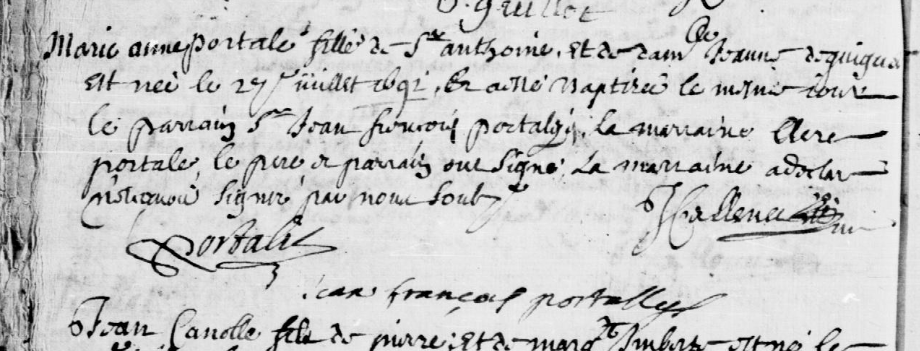 Guillot
Marie anne portale fille de Sr anthoine, Et de dam.lle Jeanne
Est née le 27 Juillet 1692, Et a esté Baptisée le mesme iour
le parrain Sr Jean francois portalis, la marraine Clere
portale, le pere et parrain ont signé, la marraine a declaré
signer par nous soubs.
Portalis
Jean françois portallys
Jean Canolle fils de pierre, Et de marg.te Imberte est né le